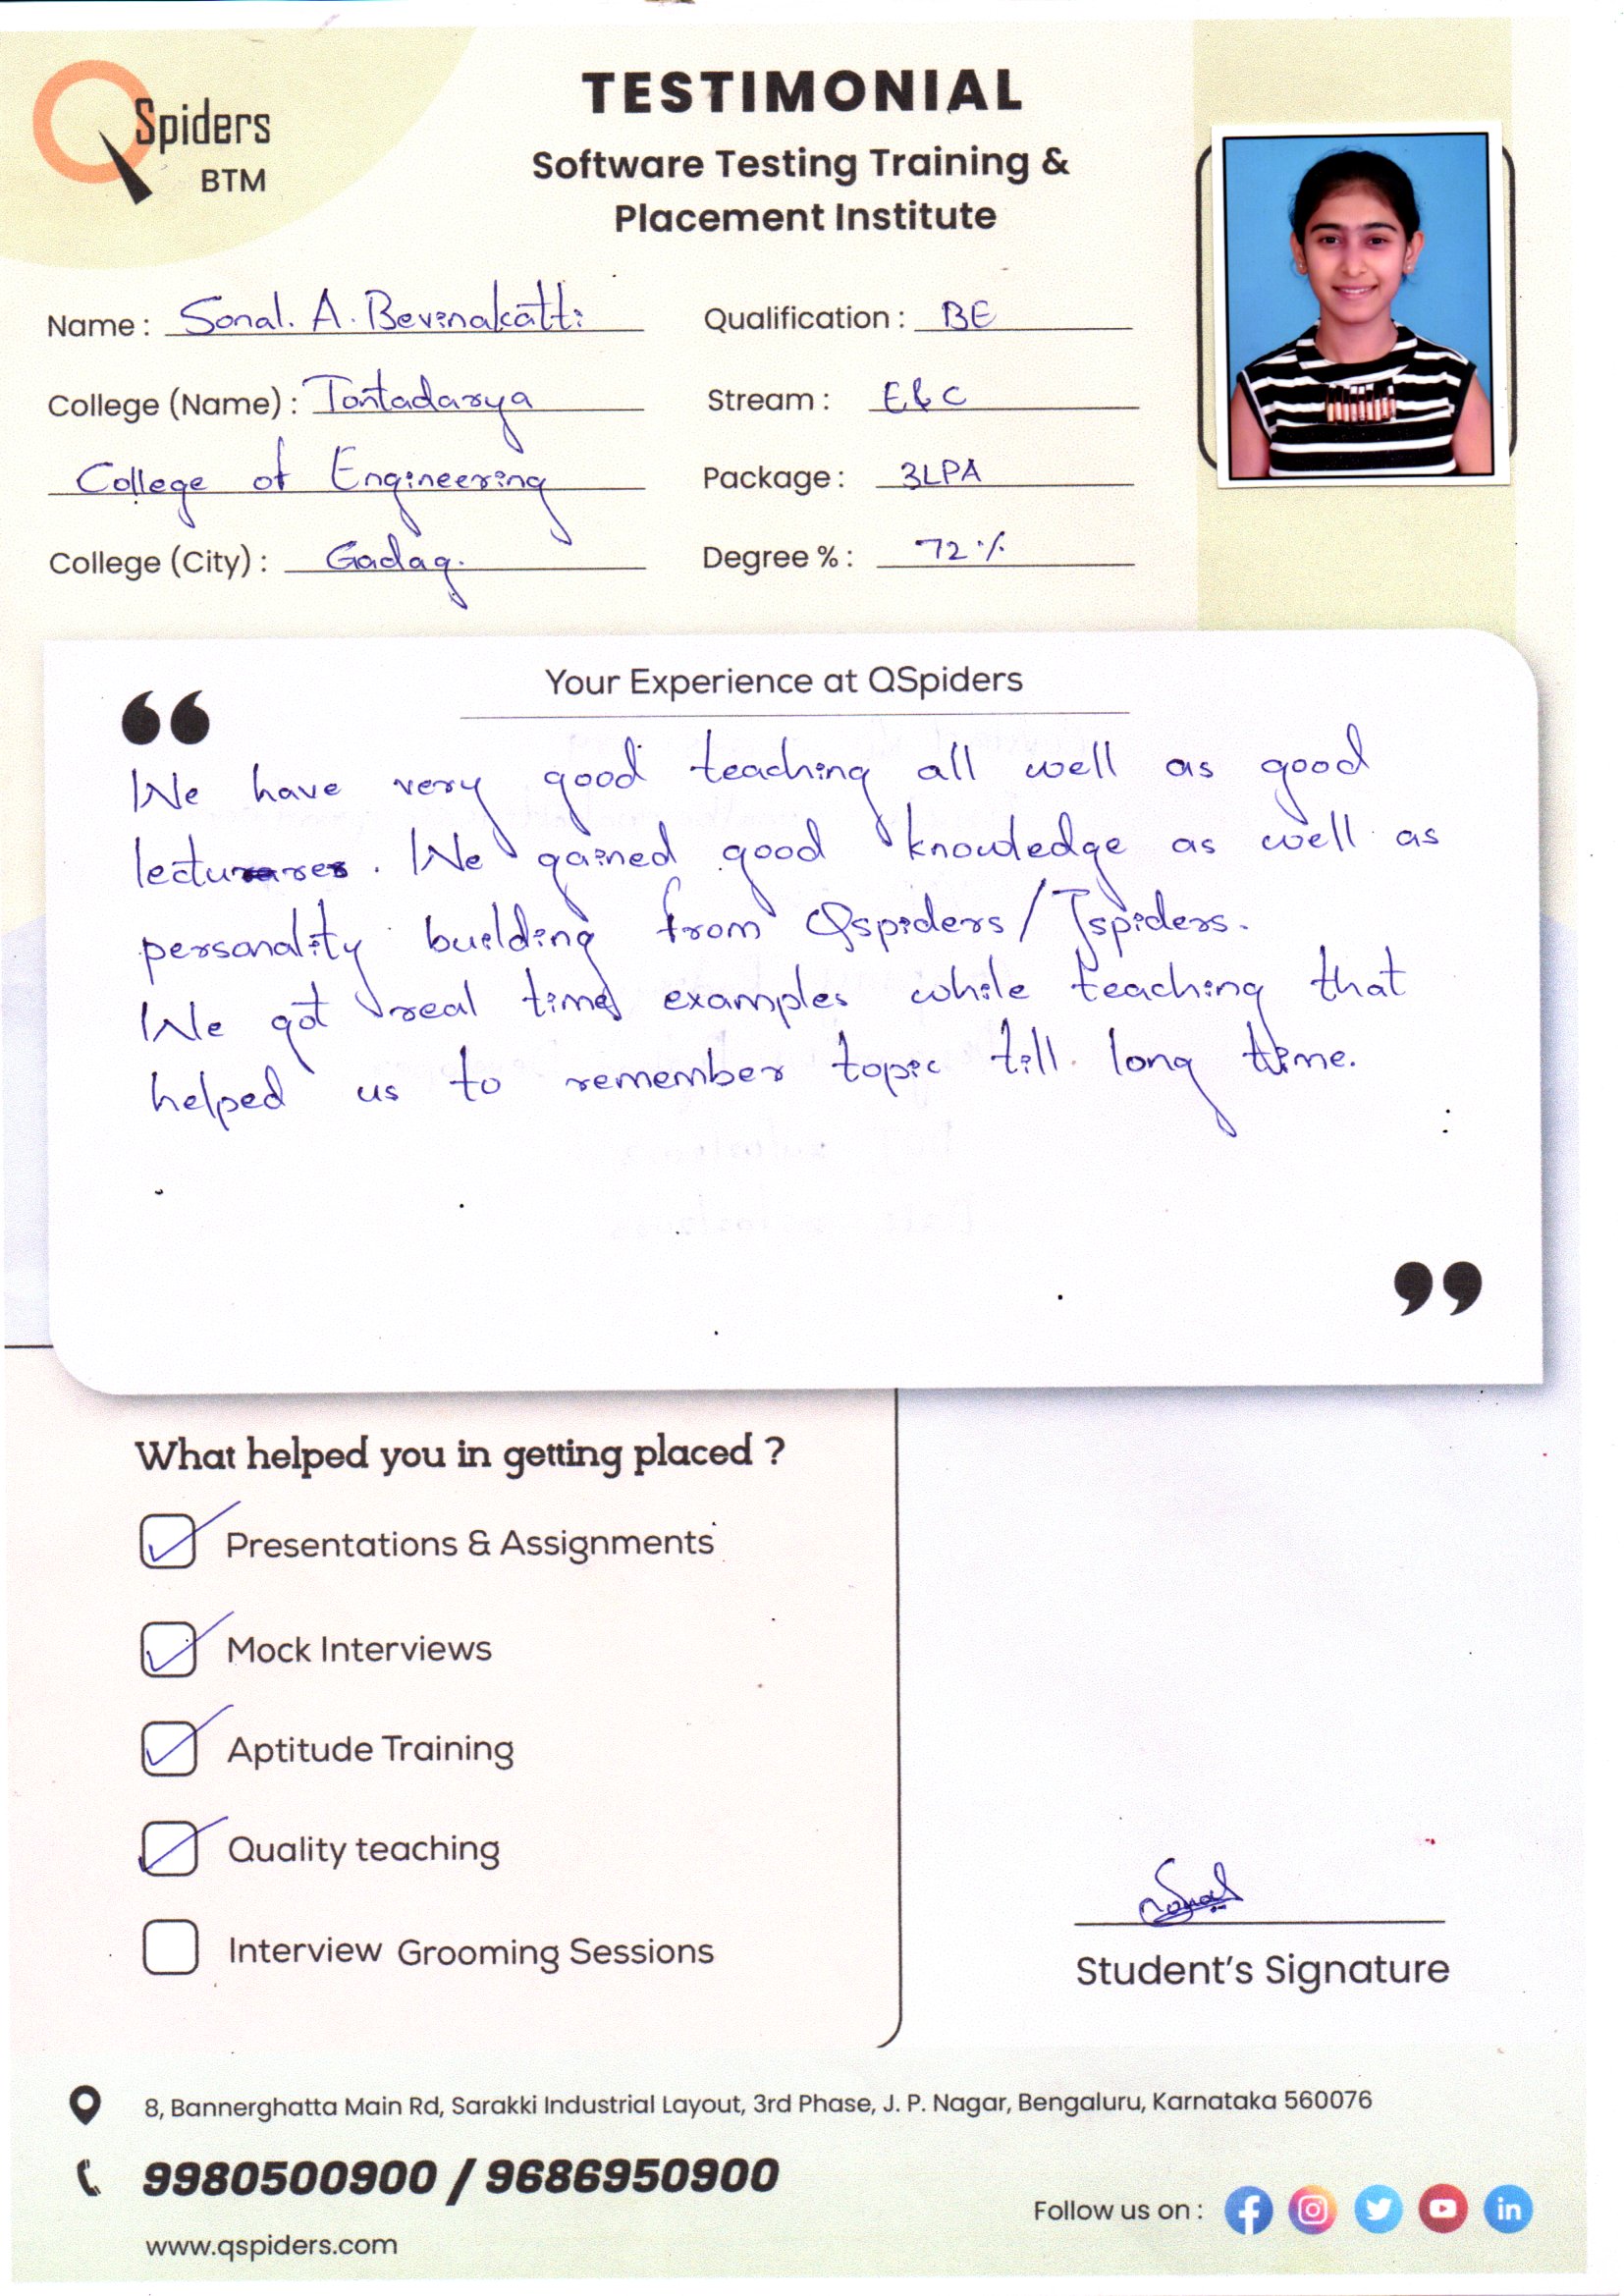 QSpiders
BTM
TESTIMONIAL
Software Testing Training &
Placement Institute
Name : Sonal. A. Bevinakatti
Qualification : BE
College (Name) : Tontadarya
Stream : E&C
College of Engineering
Package : 3LPA
College (City) : Gadag.
Degree % : 72%
Your Experience at QSpiders
“
We have very good teaching all well as good
lectures. We gained good knowledge as well as
personality building from Qspiders/Jspiders.
We got real time examples while teaching that
helped us to remember topic till long time.
”
What helped you in getting placed ?
Presentations & Assignments
Mock Interviews
Aptitude Training
Quality teaching
Interview Grooming Sessions
Sonal
Student’s Signature
8, Bannerghatta Main Rd, Sarakki Industrial Layout, 3rd Phase, J. P. Nagar, Bengaluru, Karnataka 560076
9980500900 / 9686950900
Follow us on :
www.qspiders.com